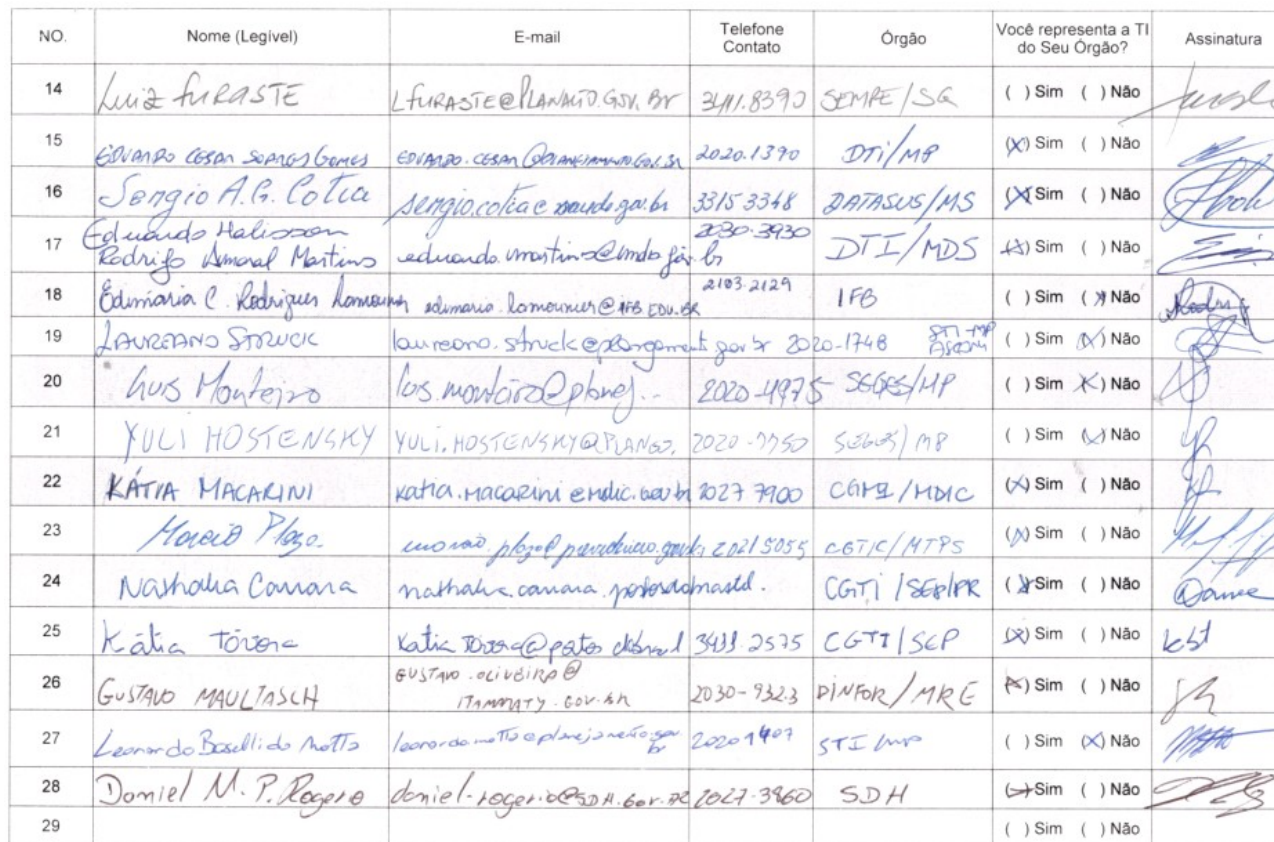 NO. Nome (Legível) E-mail Telefone Contato Órgão Você representa a TI do Seu Órgão? Assinatura
14 Luiz FURASTE LFURASTE@PLANALTO.GOV.Br 3411.8390 SEMPE/SG ( ) Sim ( ) Não
15 EDUARDO CESAR SOARES GOMES EDUARDO.CESAR@PLANEJAMENTO.GOV.BR 2020.1390 DTI/MP (X) Sim ( ) Não
16 Sergio A.G. Cotia sergio.cotia@saude.gov.br 3315 3348 DATASUS/MS (X) Sim ( ) Não
17 Eduardo Halisson 2030-3930
Rodrigo Amaral Martins eduardo.martins@mds.gov.br DTI/MDS (X) Sim ( ) Não
18 Edimaria C. Rodrigues Lamounier edimaria.lamounier@IFB.EDU.BR 2103.2129 IFB ( ) Sim (X) Não
19 LAUREANO STRUCK laureano.struck@planejamento.gov.br 2020-1748 STI-MP ( ) Sim (X) Não
20 Luis Monteiro luis.monteiro@planej... 2020-4975 SEGES/MP ( ) Sim (X) Não
21 YULI HOSTENSKY YULI.HOSTENSKY@PLANGO. 2020-7750 SEGES/MP ( ) Sim (X) Não
22 KÁTIA MACARINI katia.macarini@mdic.gov.br 2027 7900 CGMI/MDIC (X) Sim ( ) Não
23 2021 5055 CGTIC/MTPS (X) Sim ( ) Não
24 Nathalia Camara nathalia.camara CGTI/SEP/PR (X) Sim ( ) Não
25 Kátia Távora 3411.2575 CGTI/SEP (X) Sim ( ) Não
26 GUSTAVO MAULTASCH GUSTAVO.OLIVEIRA@
ITAMARATY.GOV.BR 2030-9323 DINFOR/MRE (X) Sim ( ) Não
27 Leonardo Boselli da Motta leonardo.motta@planejamento.gov.br 2020 1407 STI/MP ( ) Sim (X) Não
28 Daniel M. P. Rogerio daniel.rogerio@SDH.Gov.BR 2027-3960 SDH (X) Sim ( ) Não
29 ( ) Sim ( ) Não